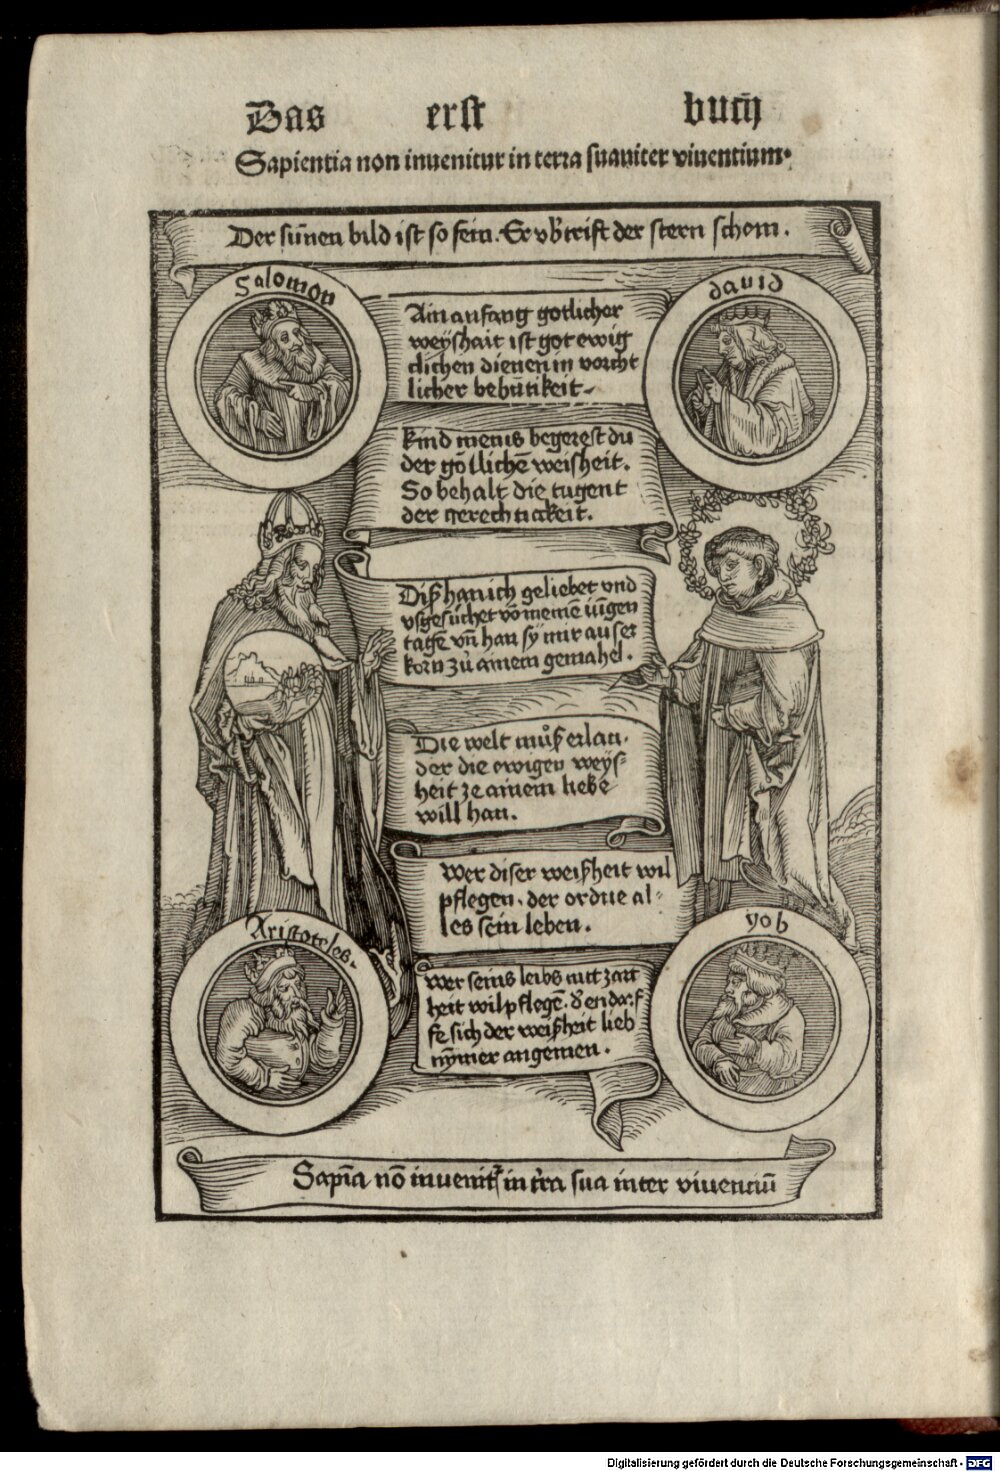 Das erst buch
Sapientia non inuenitur in terra suauiter viuentium.
Der sūnen bild ist so fein. Er vb'trift der stern schein.
Salomon
dauid
Ain anfang gotlicher
weyshait ist got ewig
clichen dienen in vorcht
licher behūtikeit.
kind meins begerest du
der gōtlichē weisheit.
So behalt die tugent
der gerechtickeit.
Diß han ich geliebet vnd
vsgesůchet vō meinē iūgen
tagē vn̄ han sy mir auser
korn zů ainem gemahel.
Die welt můß erlan,
der die ewigen weys-
heit ze ainem liebe
will han.
Wer diser weißheit wil
pflegen. der ordne al-
les sein leben.
Aristoteles.
yob
Wer seins leibs mit zart
heit wil pflegē. d' endar:f
fe sich der weißheit lieb
nym̄er angemen.
Sapīa nō inuenit' in t'ra sua inter viuentiū
Digitalisierung gefördert durch die Deutsche Forschungsgemeinschaft - DFG